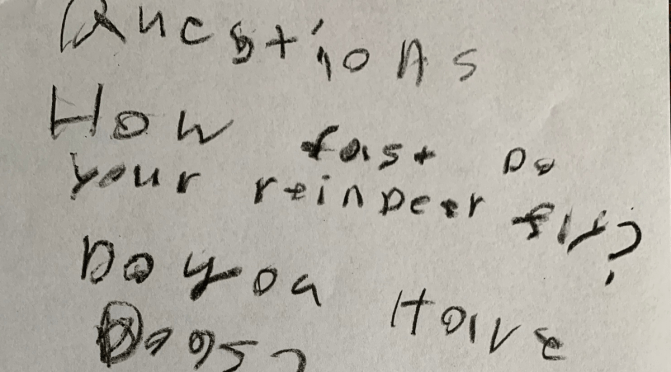 Questions
How fast Do
your reinDeer fly?
Do you Have
Dogs?